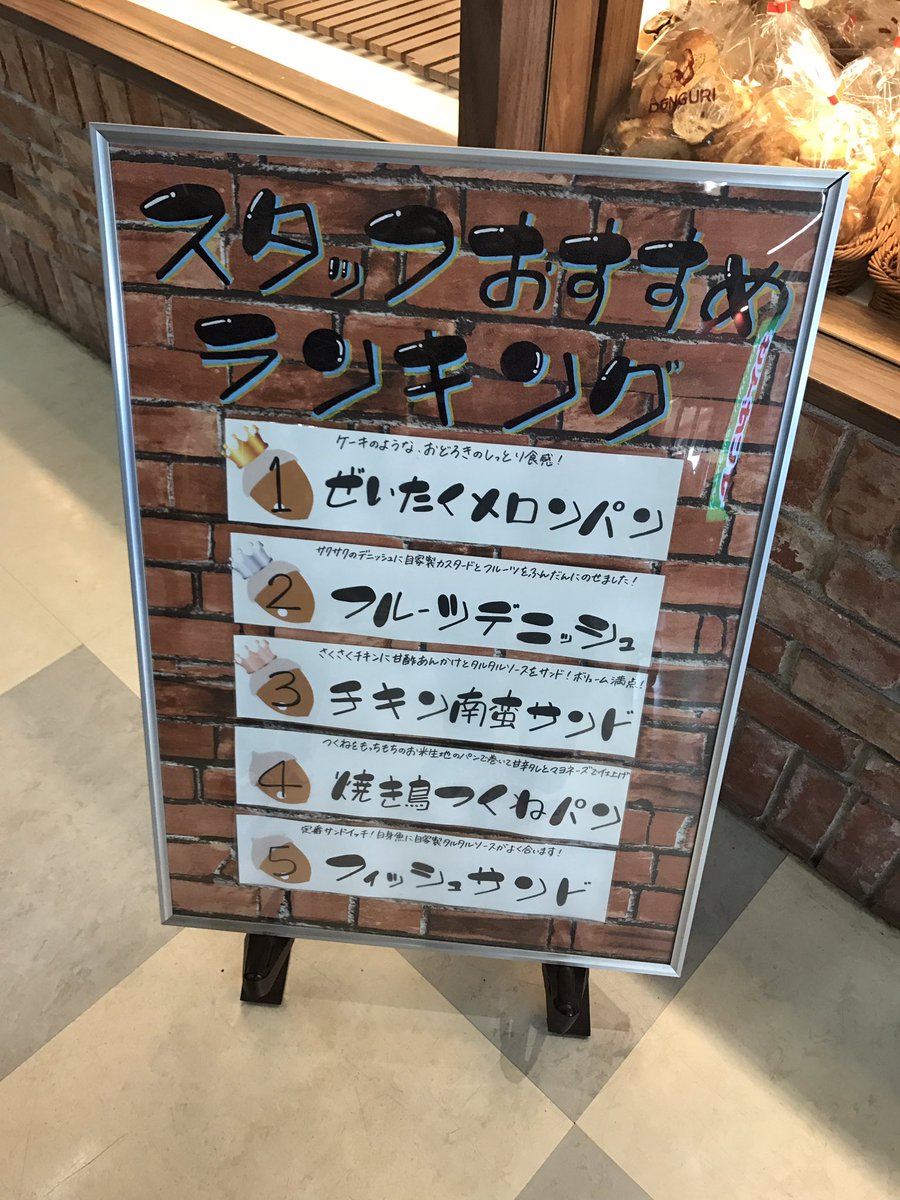 DONGURI
スタッフおすすめ
ランキング
ケーキのような、おどろきのしっとり食感！
1 ぜいたくメロンパン
サクサクのデニッシュに自家製カスタードとフルーツをふんだんにのせました！
2 フルーツデニッシュ
さくさくチキンに甘酢あんかけとタルタルソースをサンド！ボリューム満点！
3 チキン南蛮サンド
つくねをもっちもちのお米生地のパンで巻いて甘辛タレとマヨネーズで仕上げ
4 焼き鳥つくねパン
定番サンドイッチ！白身魚に自家製タルタルソースがよく合います！
5 フィッシュサンド